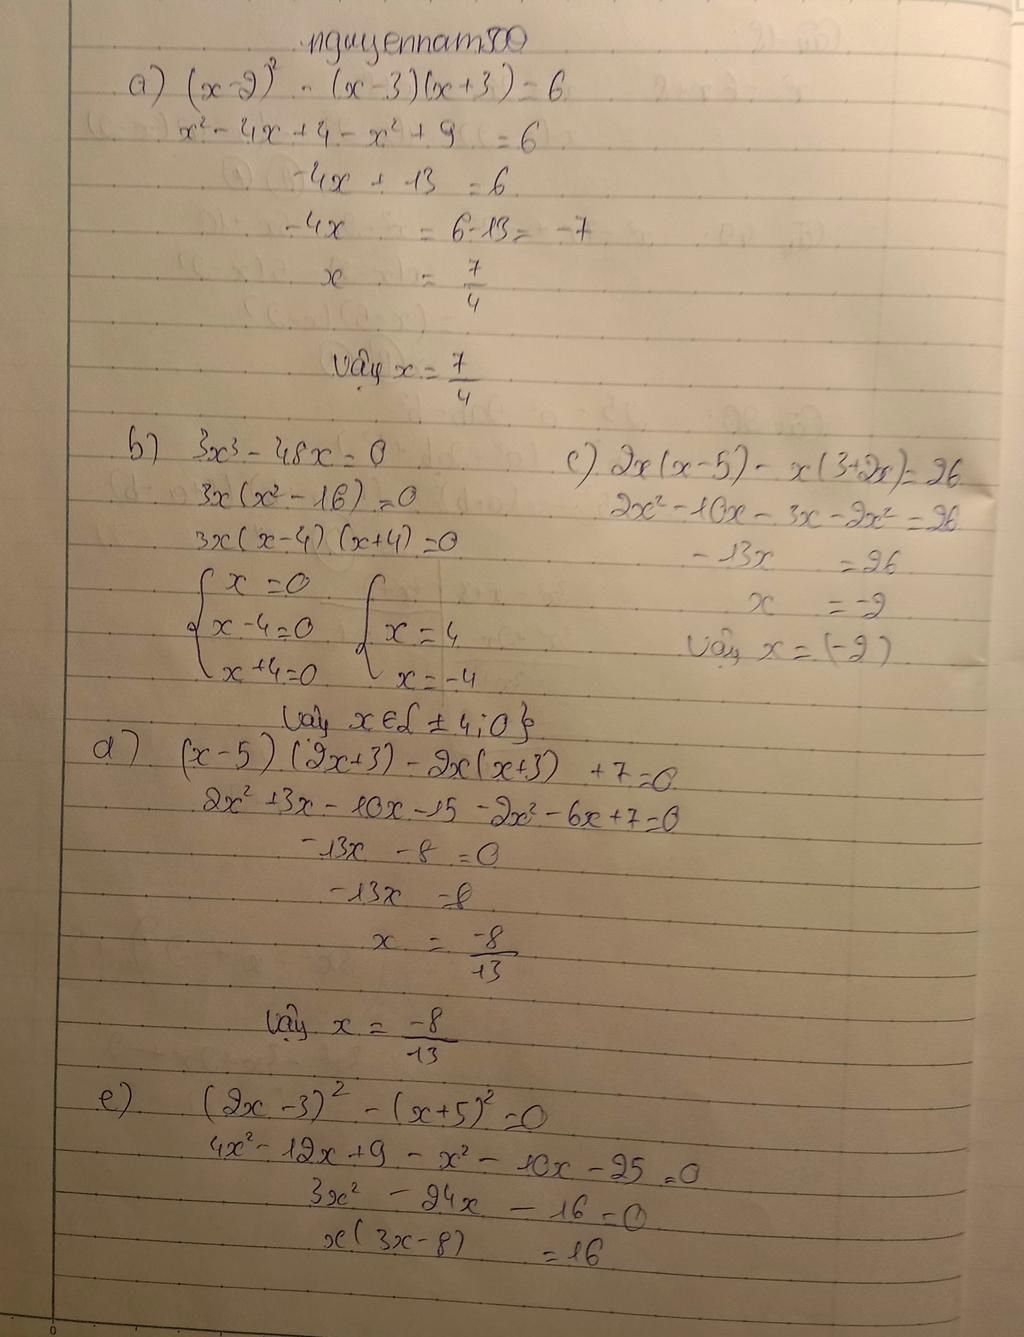 nguyennam80
a) (x-2)² - (x-3)(x+3) = 6
x² - 4x + 4 - x² + 9 = 6
-4x + 13 = 6
-4x = 6-13 = -7
x = 7/4
Vậy x = 7/4
b) 3x³ - 48x = 0
3x(x² - 16) = 0
3x(x-4)(x+4) = 0
{ x = 0
x - 4 = 0 { x = 4
x + 4 = 0 x = -4
Vậy x ∈ { ± 4; 0 }
c) 2x(x-5) - x(3+2x) = 26
2x² - 10x - 3x - 2x² = 26
-13x = 26
x = -2
Vậy x = (-2)
d) (x-5)(2x+3) - 2x(x+3) + 7 = 0
2x² + 3x - 10x - 15 - 2x² - 6x + 7 = 0
-13x - 8 = 0
-13x = 8
x = -8/13
Vậy x = -8/13
e) (2x-3)² - (x+5)² = 0
4x² - 12x + 9 - x² - 10x - 25 = 0
3x² - 24x - 16 = 0
x(3x-8) = 16
0